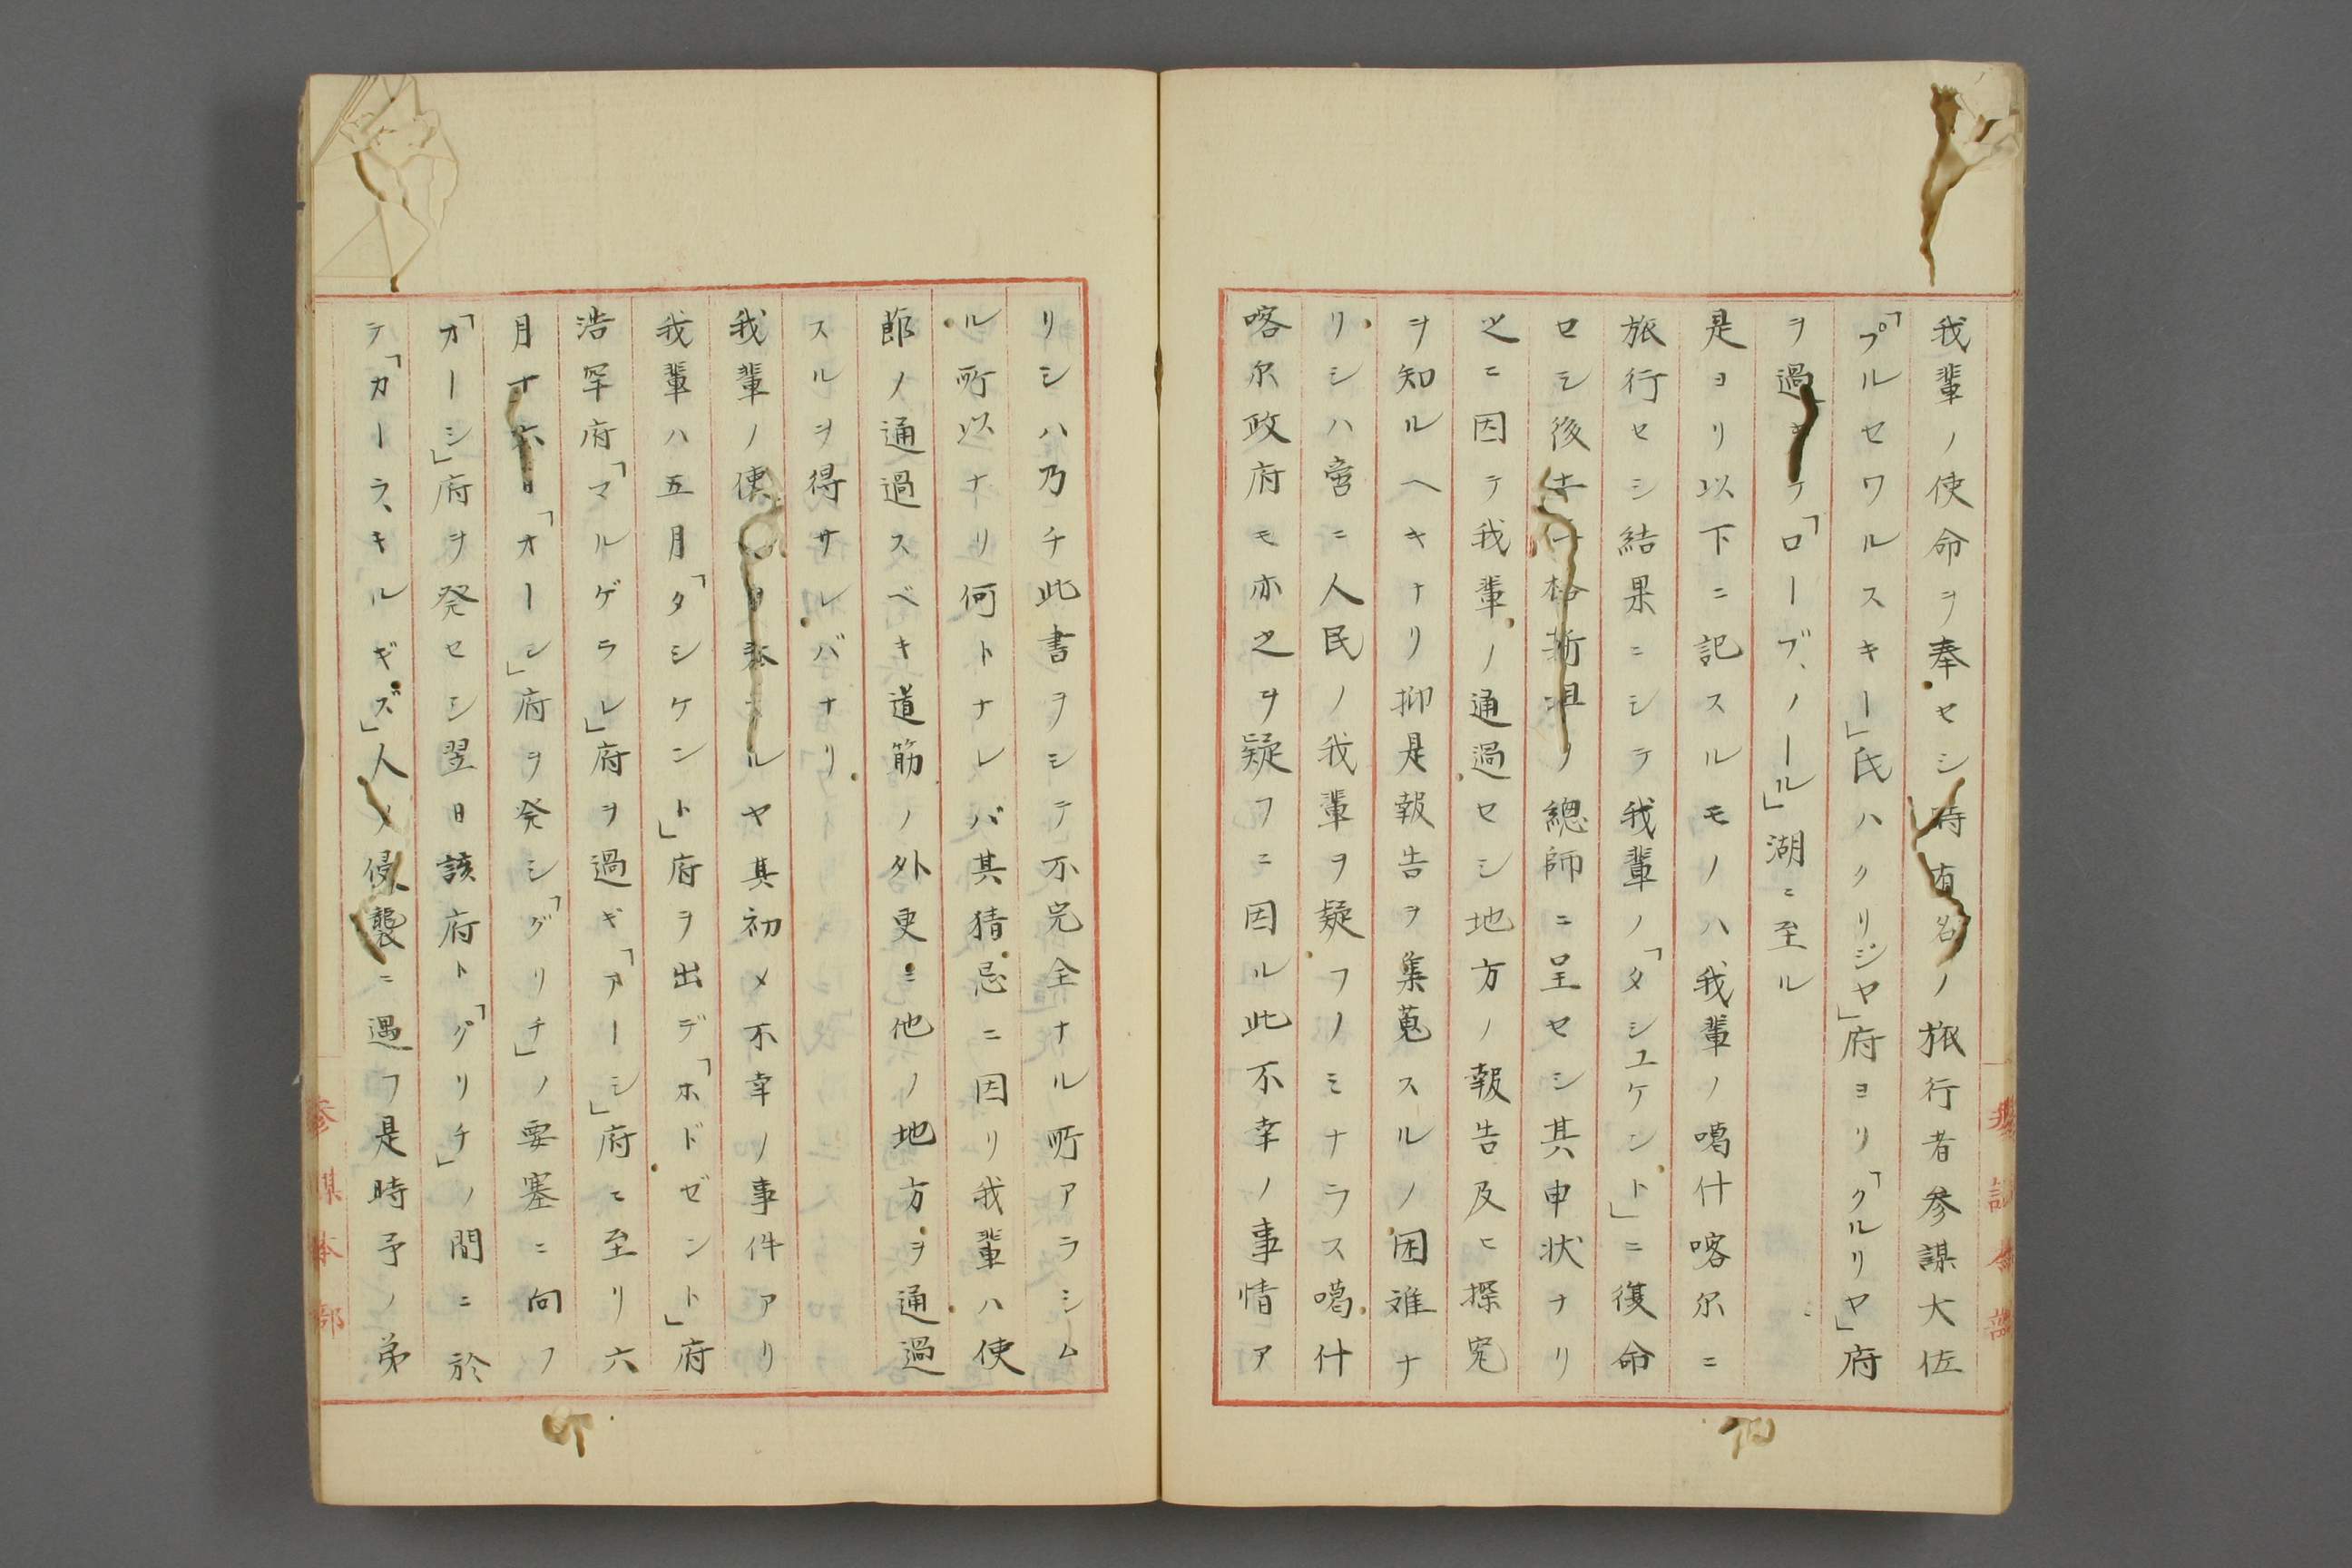 我輩ノ使命ヲ奉セシ時有名ノ旅行者参謀大佐
「プルセワルスキー」氏ハクリジヤ」府ヨリ「クルリヤ」府
ヲ過キテ「ローブ、ノール」湖ニ至ル
是ヨリ以下ニ記スルモノハ我輩ノ噶什喀尓ニ
旅行セシ結果ニシテ我輩ノ「タシユケント」ニ復命
セシ後土耳格斯坦ノ總師ニ呈セシ其申状ナリ
之ニ因テ我輩ノ通過セシ地方ノ報告及ヒ探究
ヲ知ルヘキナリ抑是報告ヲ集蒐スルノ困难ナ
リシハ啻ニ人民ノ我輩ヲ疑フノミナラス噶什
喀尓政府モ亦之ヲ疑フニ因ル此不幸ノ事情ア
リシハ乃チ此書ヲシテ不完全ナル所アラシム
ル所以ナリ何トナレバ其猜忌ニ因リ我輩ハ使
節ノ通過スベキ道筋ノ外更ニ他ノ地方ヲ通過
スルヲ得サレバナリ
我輩ノ使ヲ ルヤ其初メ不幸ノ事件アリ
我輩ハ五月「タシケント」府ヲ出デ「ホドゼント」府
浩罕府「マルゲラレ」府ヲ過ギ「アーシ」府ニ至リ六
月十六日「オーシ」府ヲ発シ「グリチ」ノ要塞ニ向フ
「オーシ」府ヲ発セシ翌日該府ト「グリチ」ノ間ニ於
テ「カーラ、キルギズ」人ノ侵襲ニ遇フ是時予ノ弟
参謀本部